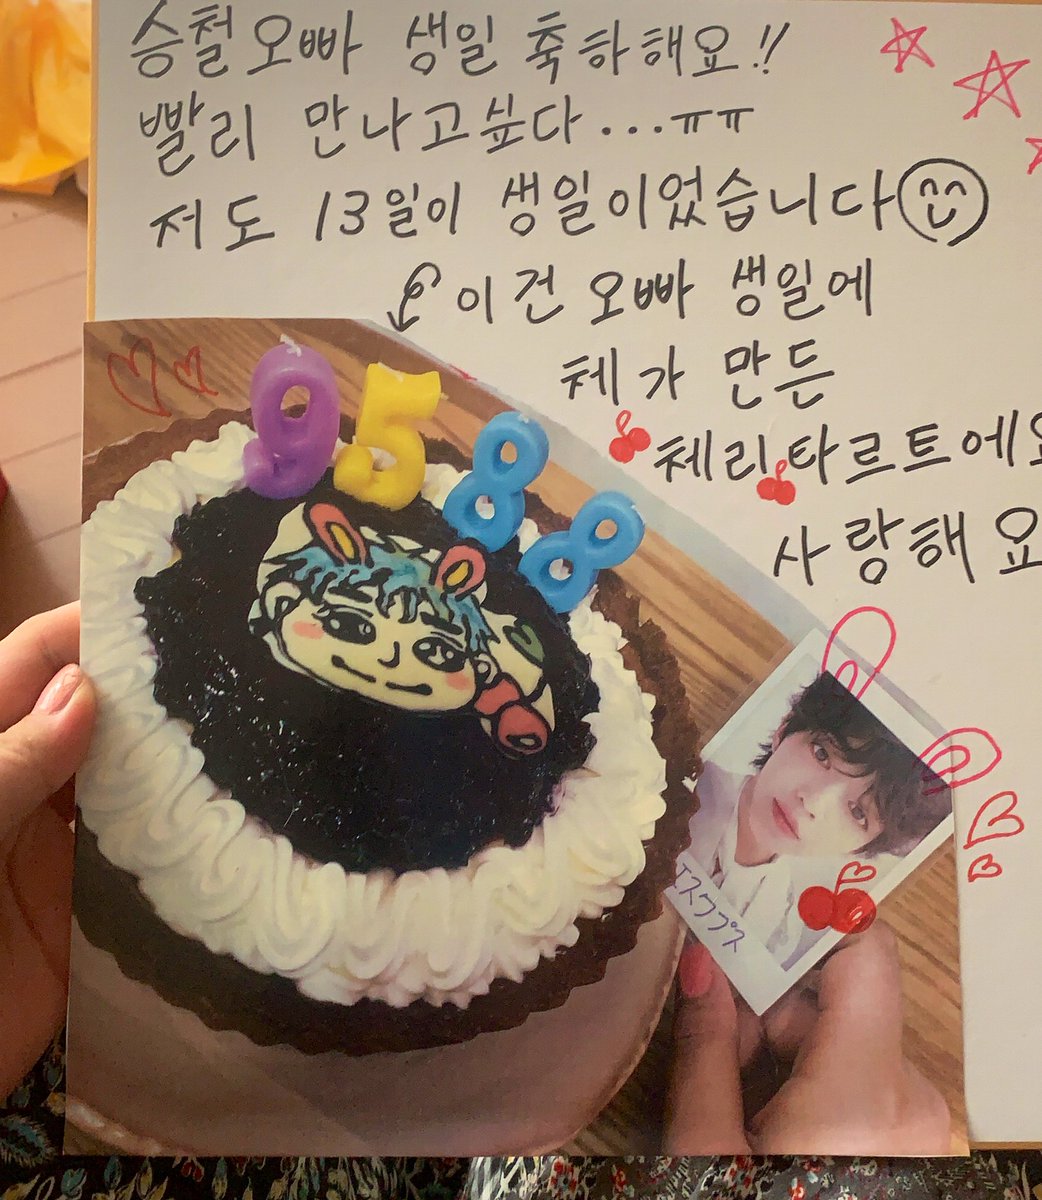 승철오빠 생일 축하해요!!
빨리 만나고싶다...ㅠㅠ
저도 13일이 생일이었습니다
이건 오빠 생일에
체가 만든
체리타르트에요
사랑해요
9588
エスクプス